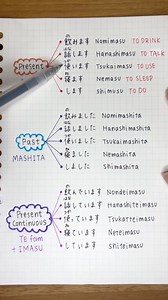 Present
飲みます Nomimasu TO DRINK
話します Hanashimasu TO TALK
使います Tsukaimasu TO USE
寝ます Nemasu TO SLEEP
します Shimasu TO DO
Past
MASHITA
飲みました Nomimashita
話しました Hanashimashita
使いました Tsukaimashita
寝ました Nemashita
しました Shimashita
Present Continuous
TE form + IMASU
飲んでいます Nondeimasu
話しています Hanashiteimasu
使っています Tsukatteimasu
寝ています Neteimasu
しています Shiteimasu